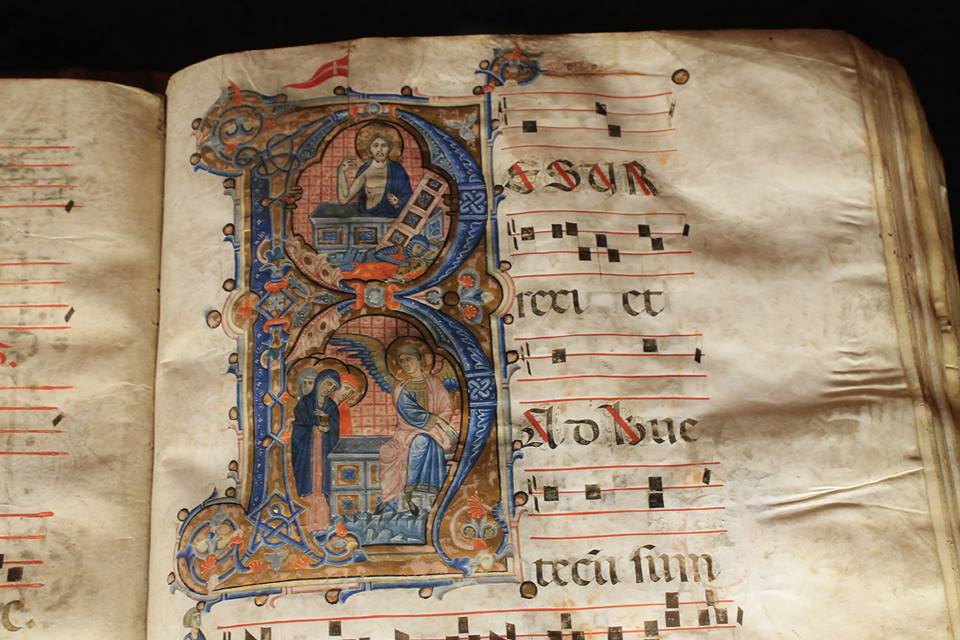 c.
RESUR
rexi et
Ad huc
tecū sum